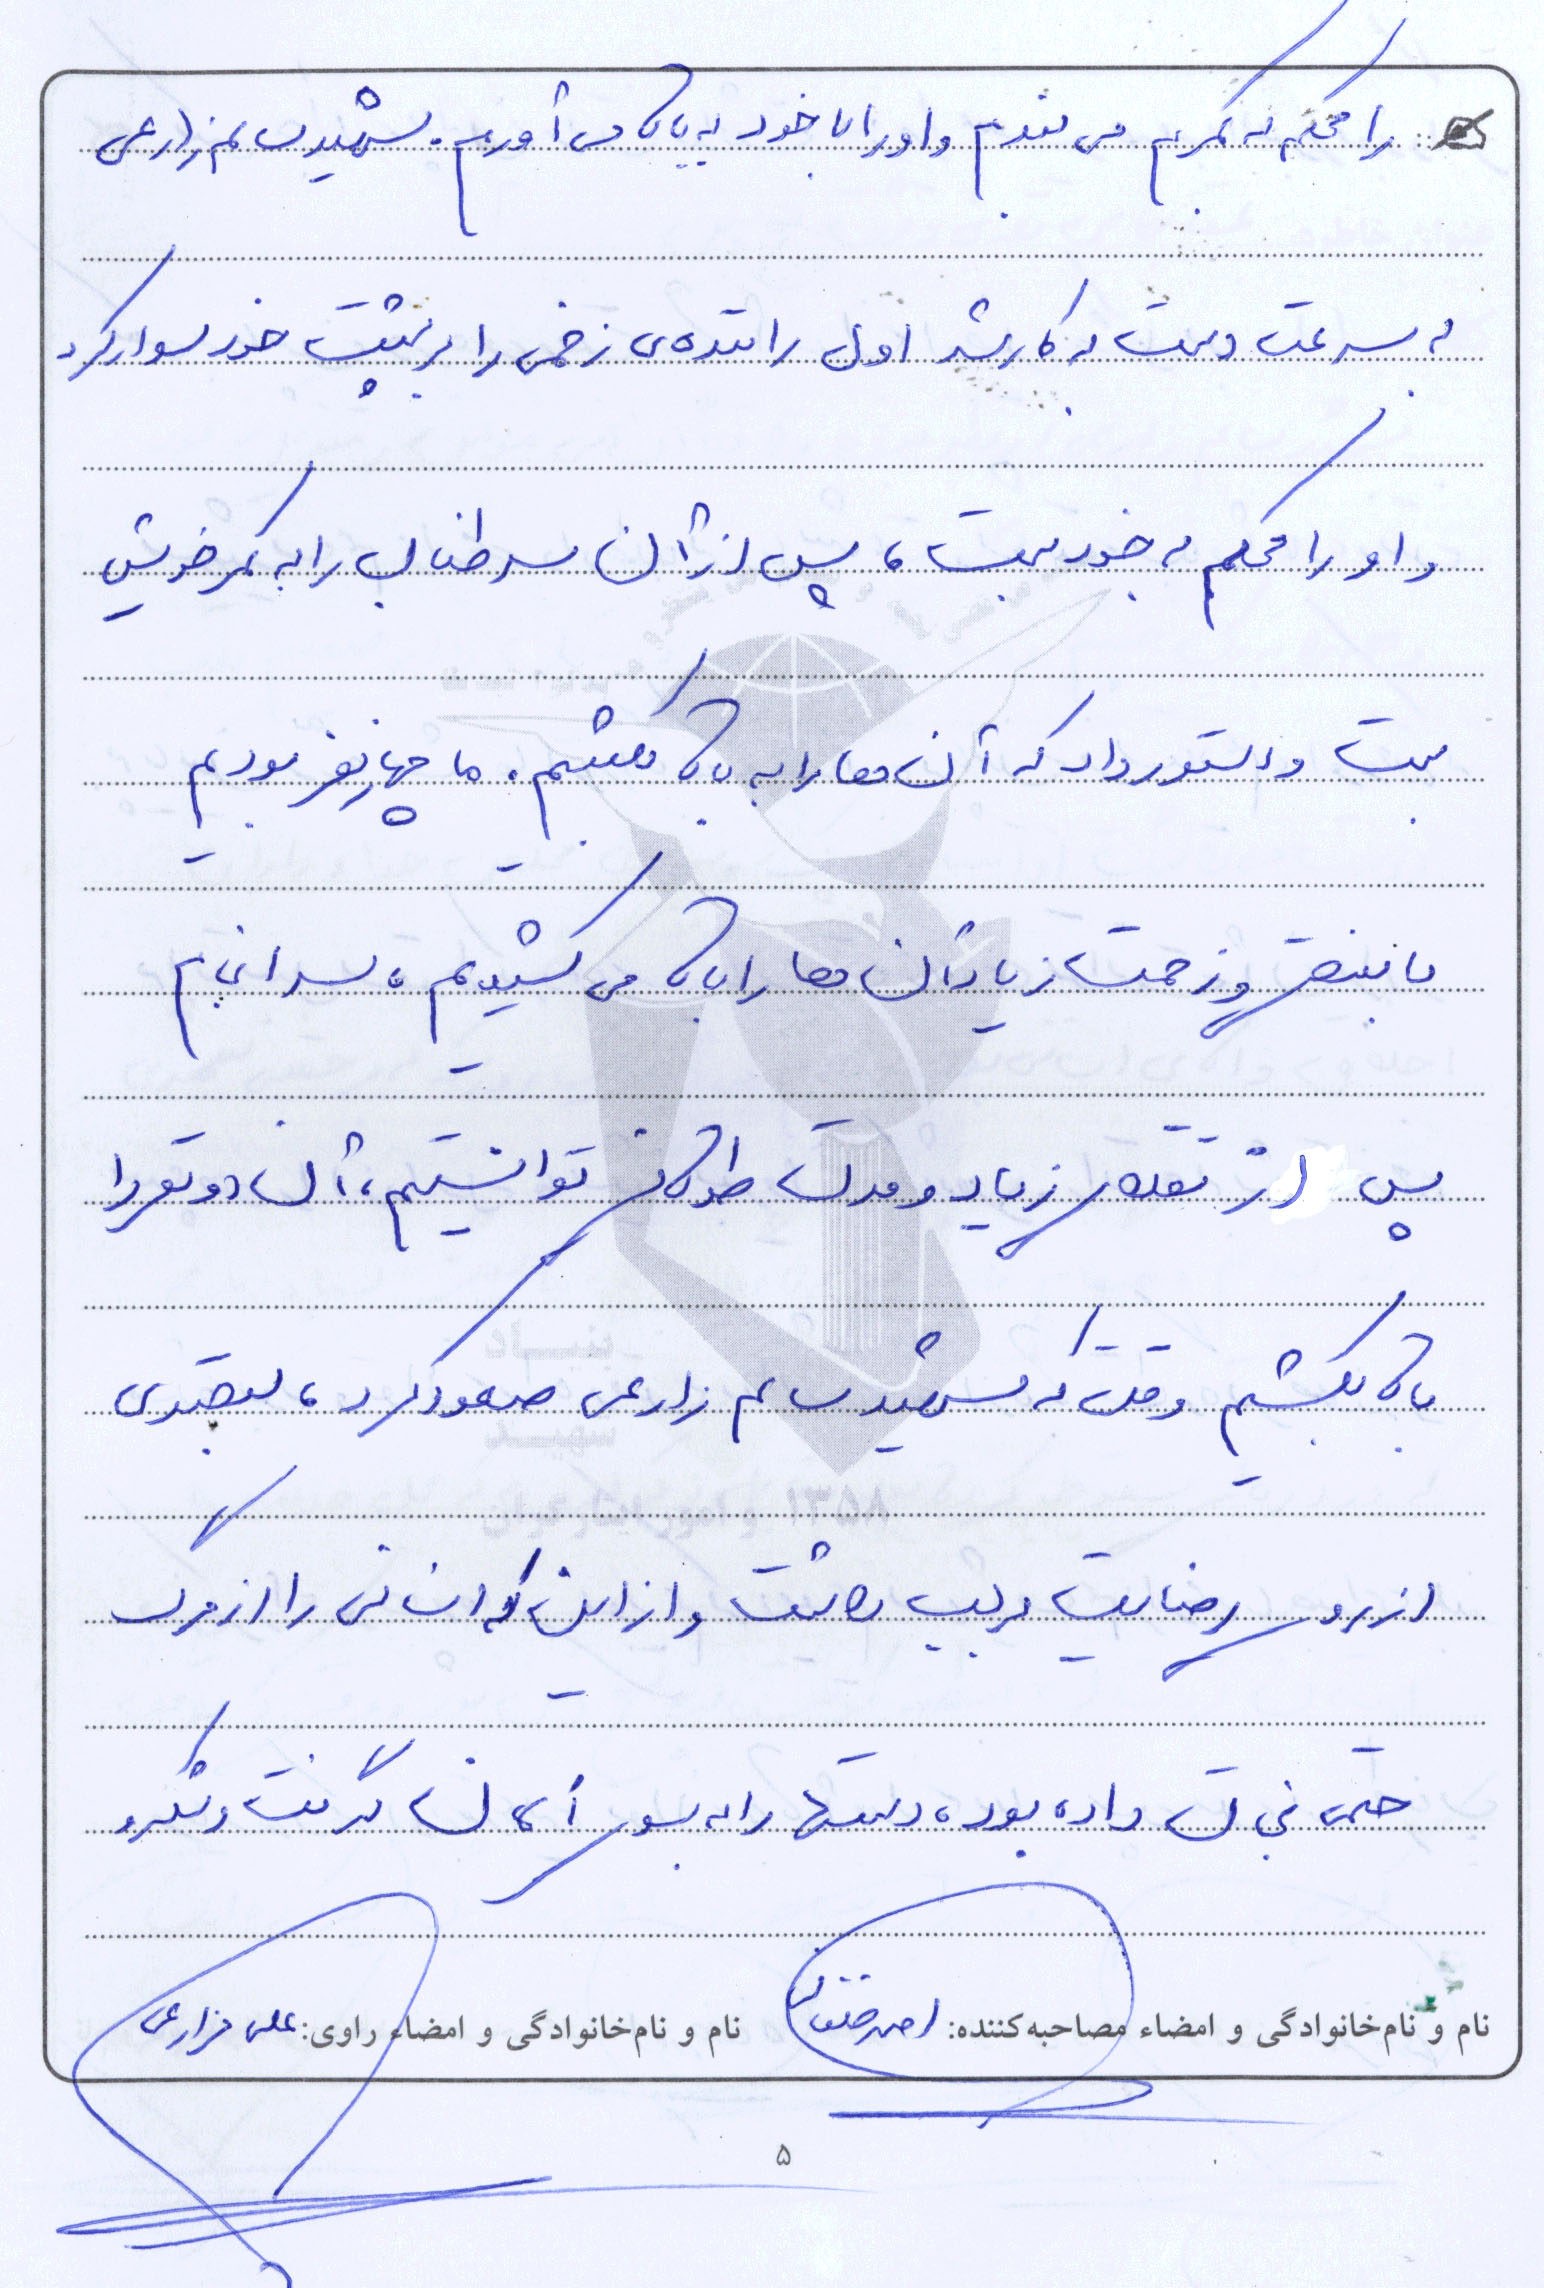 را محکم به کمرم می بندم و او را با خود به بالا می آورم. شهید سالم زارعی
به سرعت دست به کار شد اول راننده‌ی زخمی را بر پشت خود سوار کرد
و او را محکم به خود بست، پس از آن سر طناب را به کمر خویش
بست و دستور داد که آن ها را به بالا بکشیم. ما چهار نفر بودیم
با زحمت زیاد آن ها را بالا می کشیدیم، سرانجام
پس از تقلای زیاد و مدت طولانی توانستیم، آن دو نفر را
بالا بکشیم وقتی که شهید سالم زارعی صعود کرد، لبخندی
از روی رضایت بر لب داشت و از این که انسانی را از مرگ
حتمی نجات داده بود، دستها را به سوی آسمان گرفت و شکر
نام و نام‌خانوادگی و امضاء مصاحبه‌کننده: نام و نام‌خانوادگی و امضاء راوی: علی زارعی
بنیاد
شهید
و امور ایثارگران ۱۳۵۸
۵